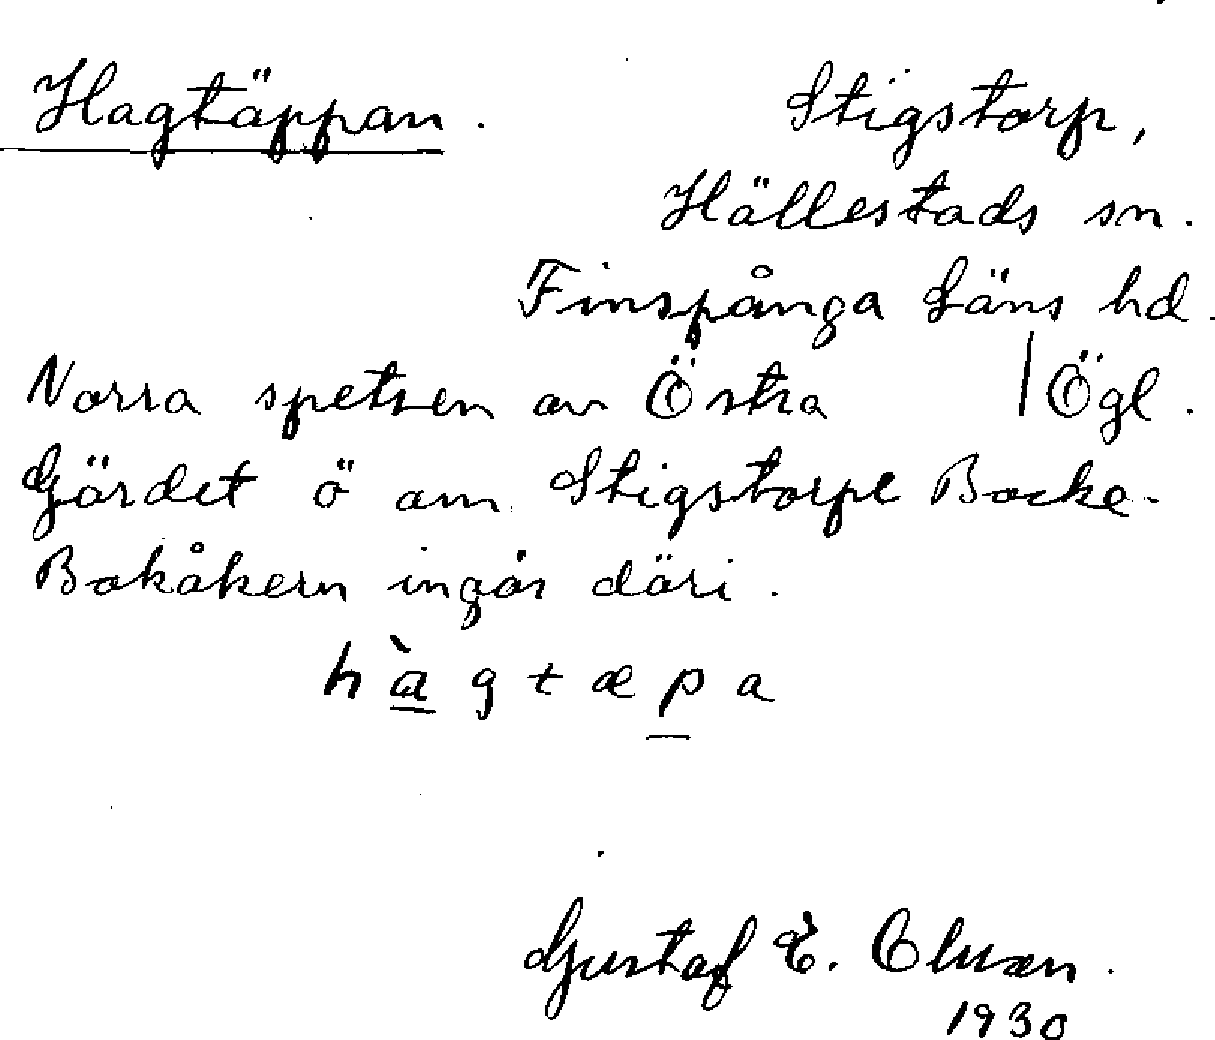 Hagtäppan.
Stigstorp,
Hällestads sn.
Finspånga Läns hd.
Norra spetsen av Östra | Ögl.
Gärdet ö om Stigstorps Backe.
Bokåkern ingår däri.
hàgtæpa
Gustaf E.
1930